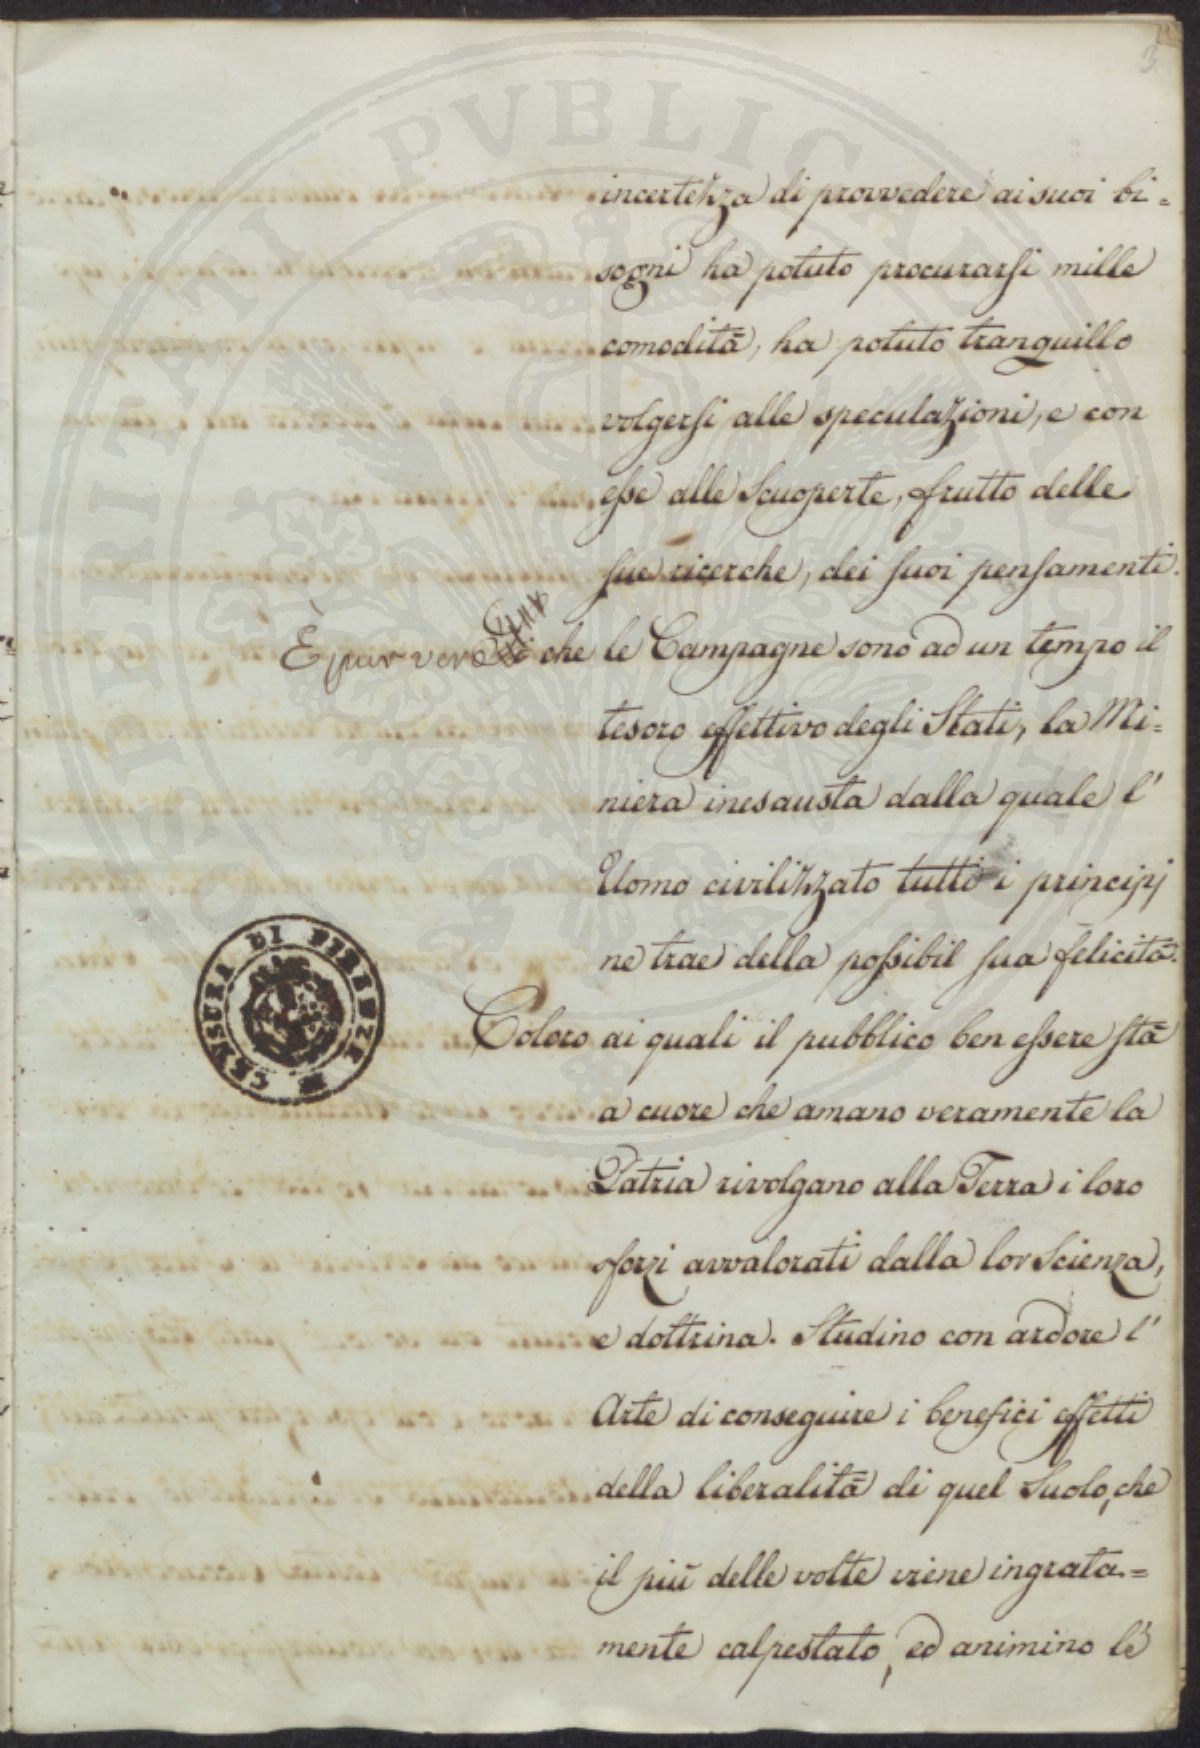 3
incertezza di provvedere ai suoi bi=
sogni ha potuto procurarsi mille
comodità, ha potuto tranquillo
volgersi alle speculazioni, e con
esse alle Scuoperte, frutto delle
sue ricerche, dei suoi pensamenti.
È pur vero che le Campagne sono ad un tempo il
tesoro effettivo degli Stati, la Mi=
niera inesausta dalla quale l'
Uomo civilizzato tutti i principj
ne trae della possibil sua felicità.
Coloro ai quali il pubblico ben essere stà
a cuore che amano veramente la
Patria rivolgano alla Terra i loro
sforzi avvalorati dalla lor Scienza,
e dottrina. Studino con ardore l'
Arte di conseguire i benefici effetti
della liberalità di quel Suolo, che
il più delle volte viene ingrata=
mente calpestato, ed animino le
CENSURA DI FIRENZE
PVBLICAE